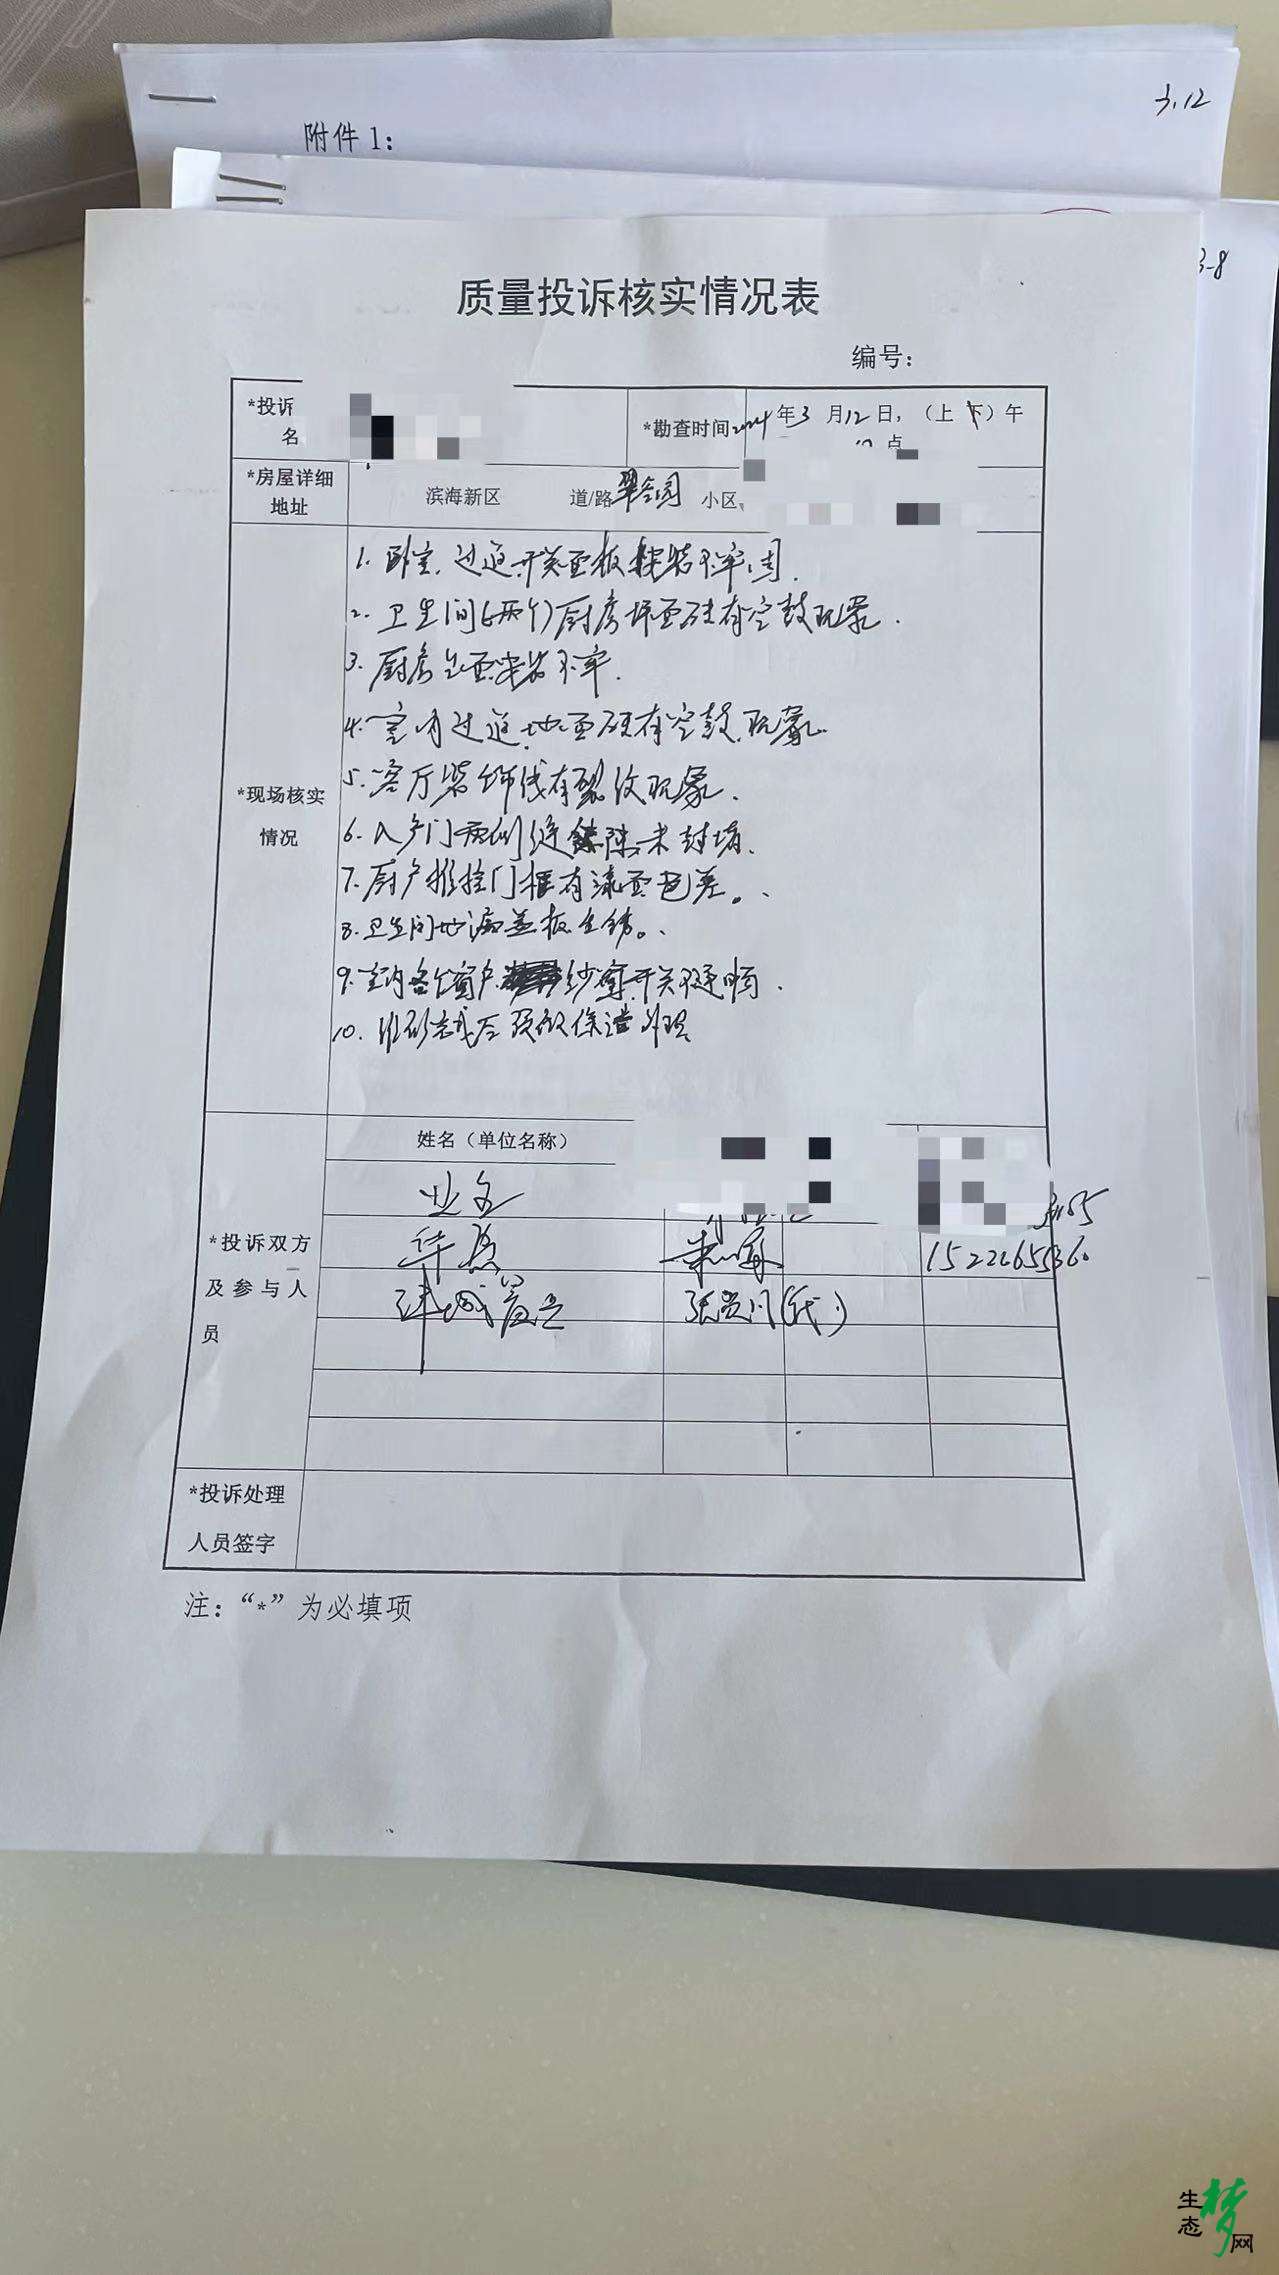 3.12
附件1：
3-8
质量投诉核实情况表
编号：
*投诉
名
*勘查时间 2024年3月12日，（上 下）午
点
*房屋详细
地址
滨海新区 道/路 小区
*现场核实
情况
1. 卧室、过道开关面板安装不牢固.
2. 卫生间(两个)厨房墙面砖有空鼓现象.
3. 厨房台面安装不牢.
4. 室内过道地面砖有空鼓现象.
5. 客厅装饰线有裂纹现象.
6. 入户门两侧缝隙未封堵.
7. 厨户推拉门框有漆面色差。
8. 卫生间地漏盖板生锈。
9. 室内各个窗户纱窗开关不通顺.
10.
姓名（单位名称）
*投诉双方
及参与人
员
业主
15222655360
(代)
*投诉处理
人员签字
注：“*”为必填项
生态梦网